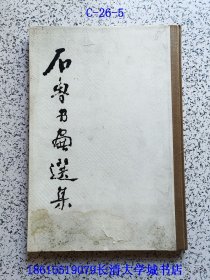 C-26-5
石魯書畫選集
18615519079长清大学城书店